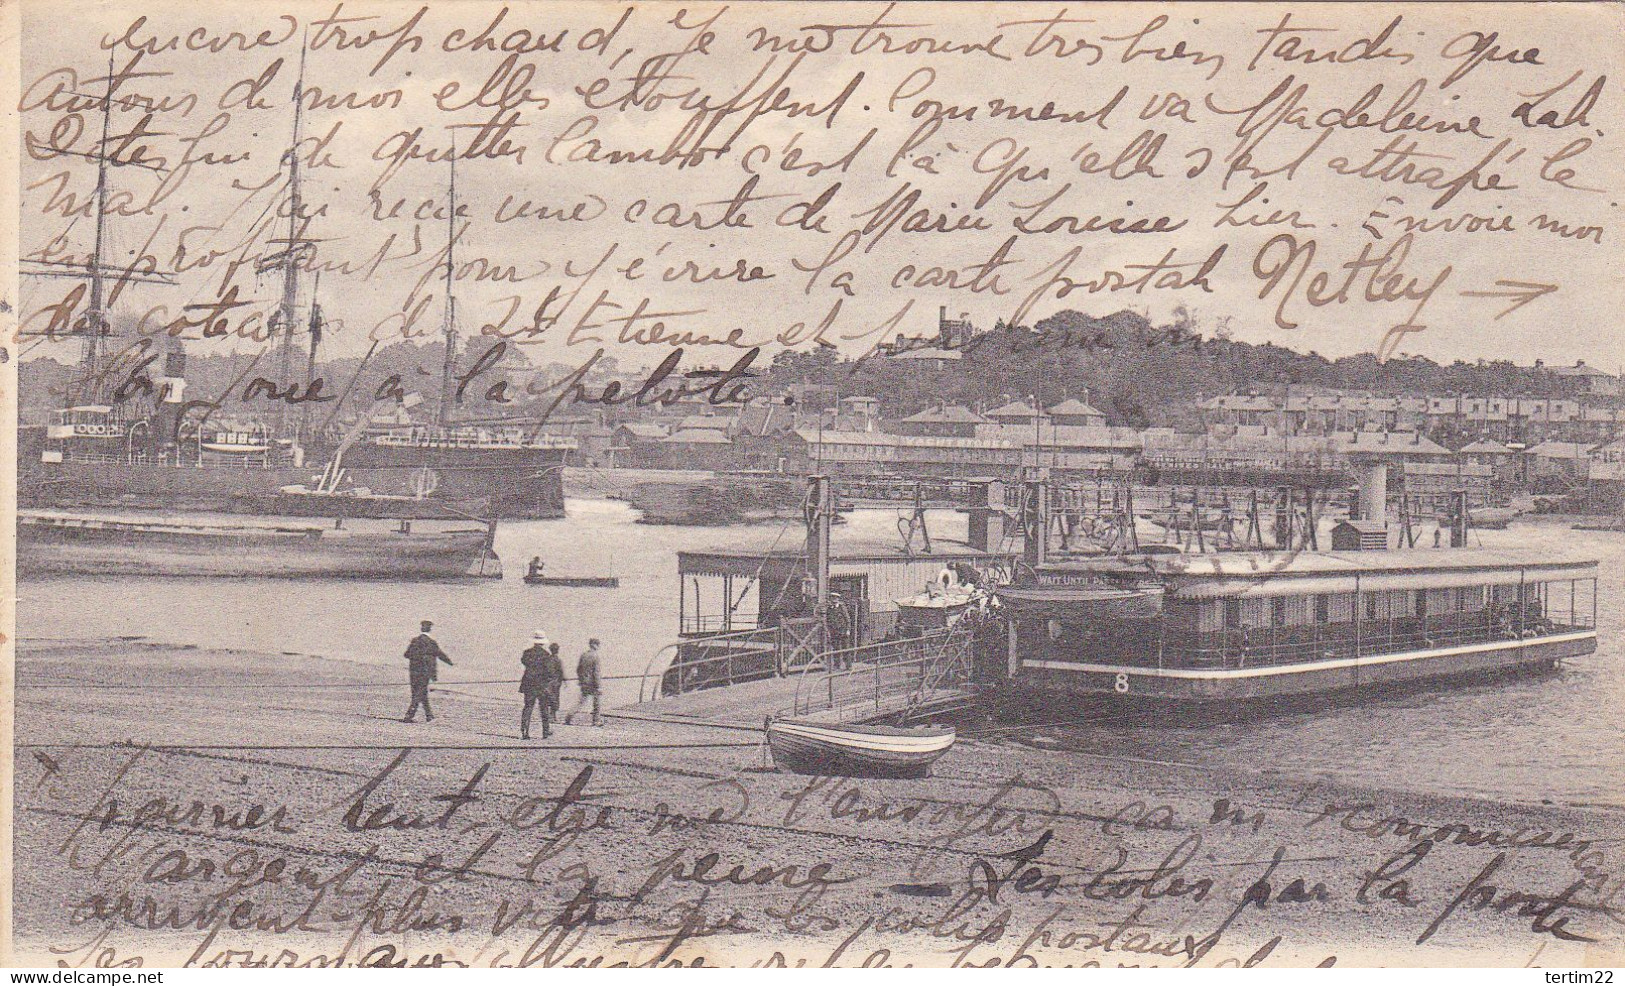 encore trop chaud, Je me trouve tres bien tandis que
Autour de moi elles étouffent. Comment va Madeleine Lah.
Dites lui de quitter Cambo c'est là qu'elle s'est attrapé le
mal. J'ai reçue une carte de Marie Louise Lier. Envoie moi
en profitant pour y écrire la carte postale Netley →
des coteaux de St Etienne et puis une où
l'on joue à la pelote.
WAIT UNTIL
8
pourrier peut, etre me l'envoyer ça m'économisera
l'argent et la peine — Les Colis par la poste
arrivent plus vite que les colis postaux
Les journaux
tertim22